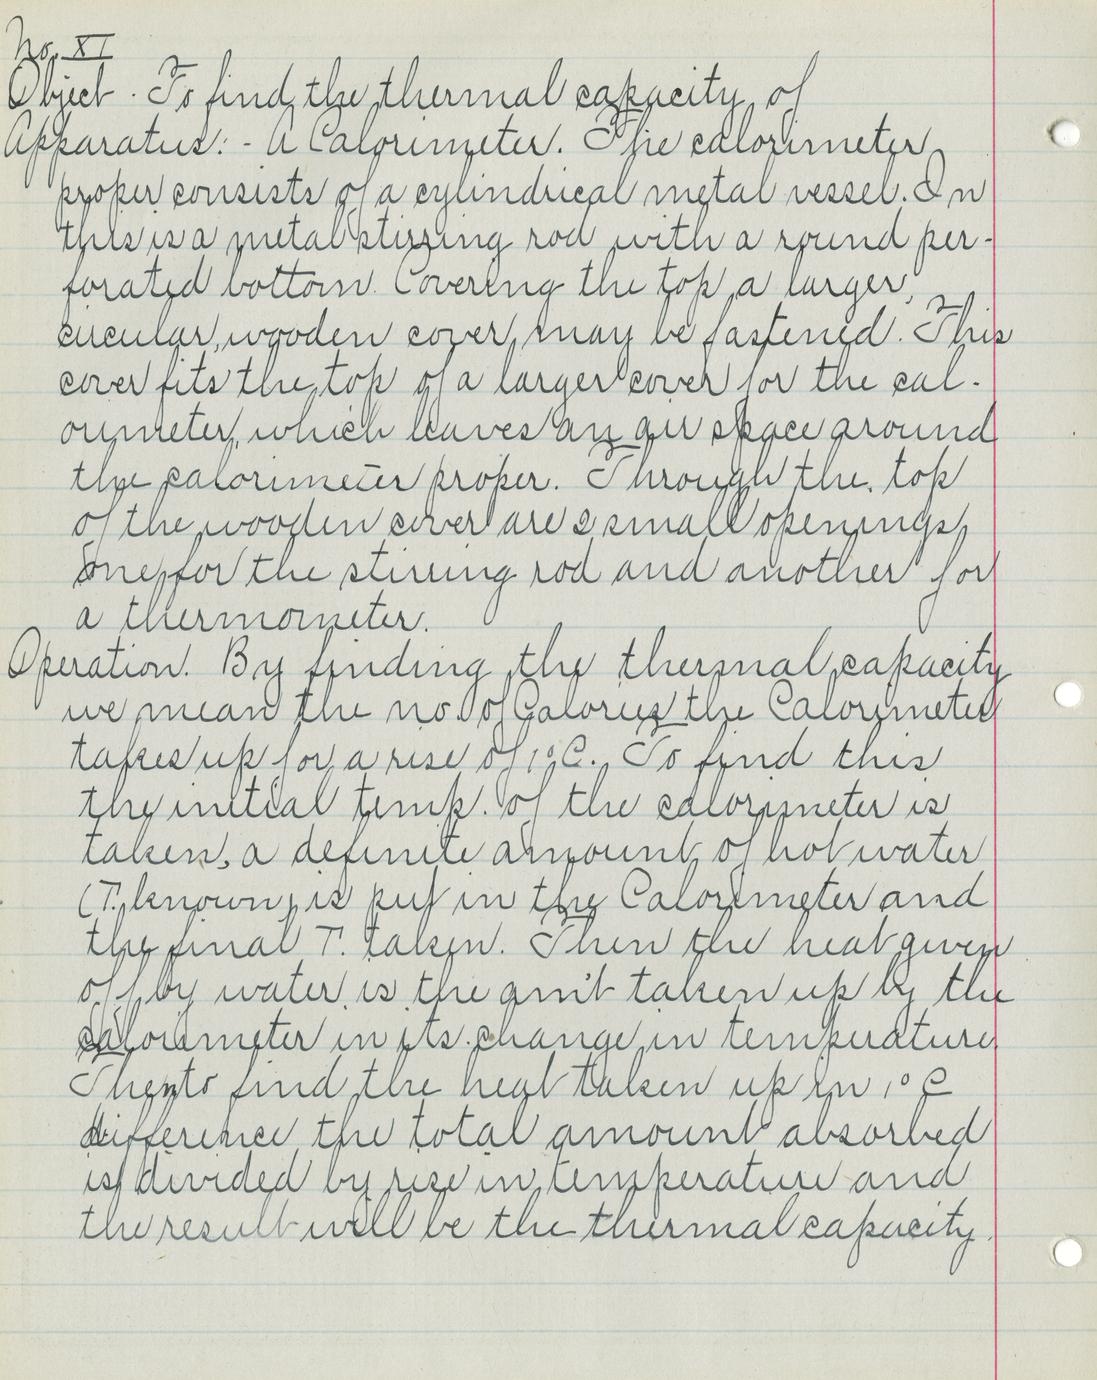 No. XI
Object - To find the thermal capacity of
Apparatus: - A Calorimeter. The calorimeter
proper consists of a cylindrical metal vessel. In
this is a metal stirring rod with a round per-
forated bottom. Covering the top a larger,
circular, wooden cover, may be fastened. This
cover fits the top of a larger cover for the cal-
orimeter, which leaves an air space around
the calorimeter proper. Through the top
of the wooden cover are 2 small openings,
one for the stirring rod and another for
a thermometer.
Operation. By finding the thermal capacity
we mean the no. of Calories the Calorimeter
takes up for a rise of 1°C. To find this
the initial temp. of the calorimeter is
taken, a definite amount of hot water
(T. known) is put in the Calorimeter and
the final T. taken. Then the heat given
off by water is the am't taken up by the
calorimeter in its change in temperature
Then to find the heat taken up in 1° C
difference the total amount absorbed
is divided by rise in temperature and
the result will be the thermal capacity.